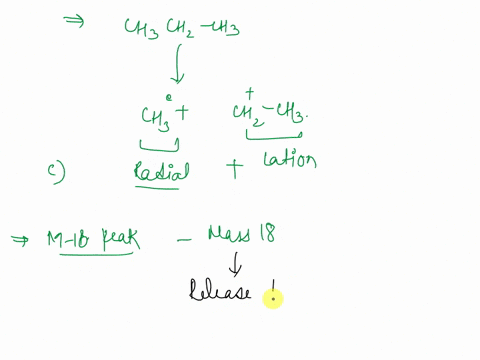 ⇒ CH3 CH2 - CH3
↓
CH3• + C+H2 - CH3.
c) Radial + Cation
⇒ M-18 peak - Mass 18
↓
Release